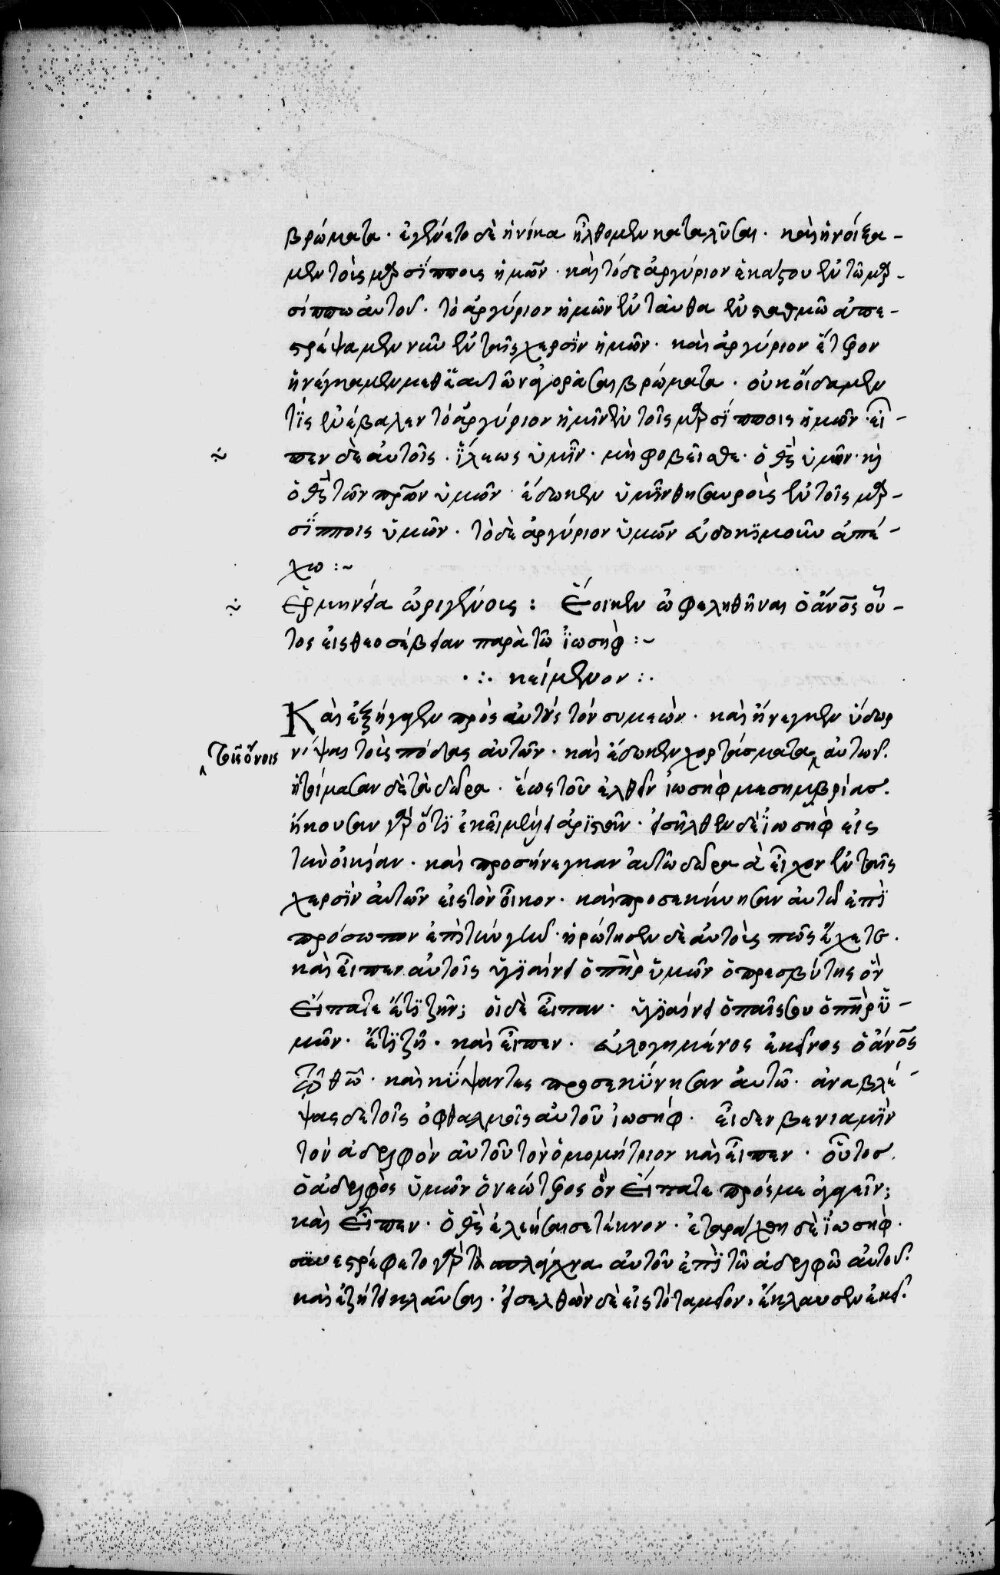 βρώματα · ἐγένετο δὲ ἡνίκα ἤλθομεν καταλῦσαι · καὶ ἠνοίξα -
μεν τοὺς μαρσίππους ἡμῶν · καὶ τόδε ἀργύριον ἑκάστου ἐν τῶ μαρ -
σίππω αὐτοῦ · τὸ ἀργύριον ἡμῶν ἐν ταύθα ἐν σταθμῶ ἀπε -
στρέψαμεν νῦν ἐν ταῖς χερσὶν ἡμῶν · καὶ ἀργύριον ἕτερον
ἠνέγκαμεν μεθ ἑαυτῶν ἀγοράσαι βρώματα · οὐκ οἴδαμεν
τίς ἐνέβαλεν τὸ ἀργύριον ἡμῶν ἐν τοῖς μαρσίπποις ἡμῶν · εἶ -
πεν δὲ αὐτοῖς · ἵλεως ὑμῖν · μὴ φοβεῖσθε · ὁ θς ὑμῶν · κὶ
ὁ θς τῶν πρων ὑμῶν · ἔδωκεν ὑμῖν θησαυροὺς ἐν τοῖς μαρ -
σίπποις ὑμῶν · τὸ δὲ ἀργύριον ὑμῶν εὐδοκιμοῦν ἀπέ -
χω : ~
Ἑρμηνεία ὠριγένους : Ἔοικεν ὠφεληθῆναι ὁ ἄνος οὗ -
τος εἰς θεοσέβειαν παρὰ τῶ ἰωσήφ : ~
· : · κείμενον : ·
Καὶ ἐξήγαγεν πρὸς αὐτοὺς τὸν συμεών · καὶ ἤνεγκεν ὕδωρ
τοῖς ὄνοις
νίψαι τοὺς πόδας αὐτῶν · καὶ ἔδωκεν χορτάσματα αὐτῶν ·
ἡτοίμασαν δὲ τὰ δῶρα · ἕως τοῦ ἐλθεῖν ἰωσὴφ μεσημβρίας ·
ἤκουσαν γὰρ ὅτι ἐκεῖ μέλλει ἀριστᾶν · εἰσῆλθεν δὲ ἰωσὴφ εἰς
τὴν οἰκίαν · καὶ προσήνεγκαν αὐτῶ δῶρα ἃ εἶχον ἐν ταῖς
χερσὶν αὐτῶν εἰς τὸν οἶκον · καὶ προσεκύνησαν αὐτῶ ἐπὶ
πρόσωπον ἐπὶ τὴν γῆν · ἠρώτησεν δὲ αὐτοὺς πῶς ἔχετε ·
καὶ εἶπεν αὐτοῖς ὑγιαίνει ὁ πηρ ὑμῶν ὁ πρεσβύτης ὃν
εἴπατε ἔτι ζῆν ; οἱ δὲ εἶπαν · ὑγιαίνει ὁ παῖς σου ὁ πηρ ἡ -
μῶν · ἔτι ζῆ · καὶ εἶπεν · εὐλογημένος ἐκεῖνος ὁ ἄνος
τῶ θῶ · καὶ κύψαντες προσεκύνησαν αὐτῶ · ἀναβλέ -
ψας δὲ τοῖς ὀφθαλμοῖς αὐτοῦ ἰωσήφ · εἶδεν βενιαμὶν
τὸν ἀδελφὸν αὐτοῦ τὸν ὁμομήτριον καὶ εἶπεν · οὗτος
ὁ ἀδελφὸς ὑμῶν ὁ νεώτερος ὃν εἴπατε πρός με ἀγαγεῖν ;
καὶ εἶπεν · ὁ θς ἐλεήσαι σε τέκνον · ἐταράχθη δὲ ἰωσήφ ·
συνεστρέφετο γὰρ τὰ σπλάγχνα αὐτοῦ ἐπὶ τῶ ἀδελφῶ αὐτοῦ ·
καὶ ἐζήτει κλαῦσαι · εἰσελθὼν δὲ εἰς τὸ ταμεῖον · ἔκλαυσεν ἐκεῖ ·